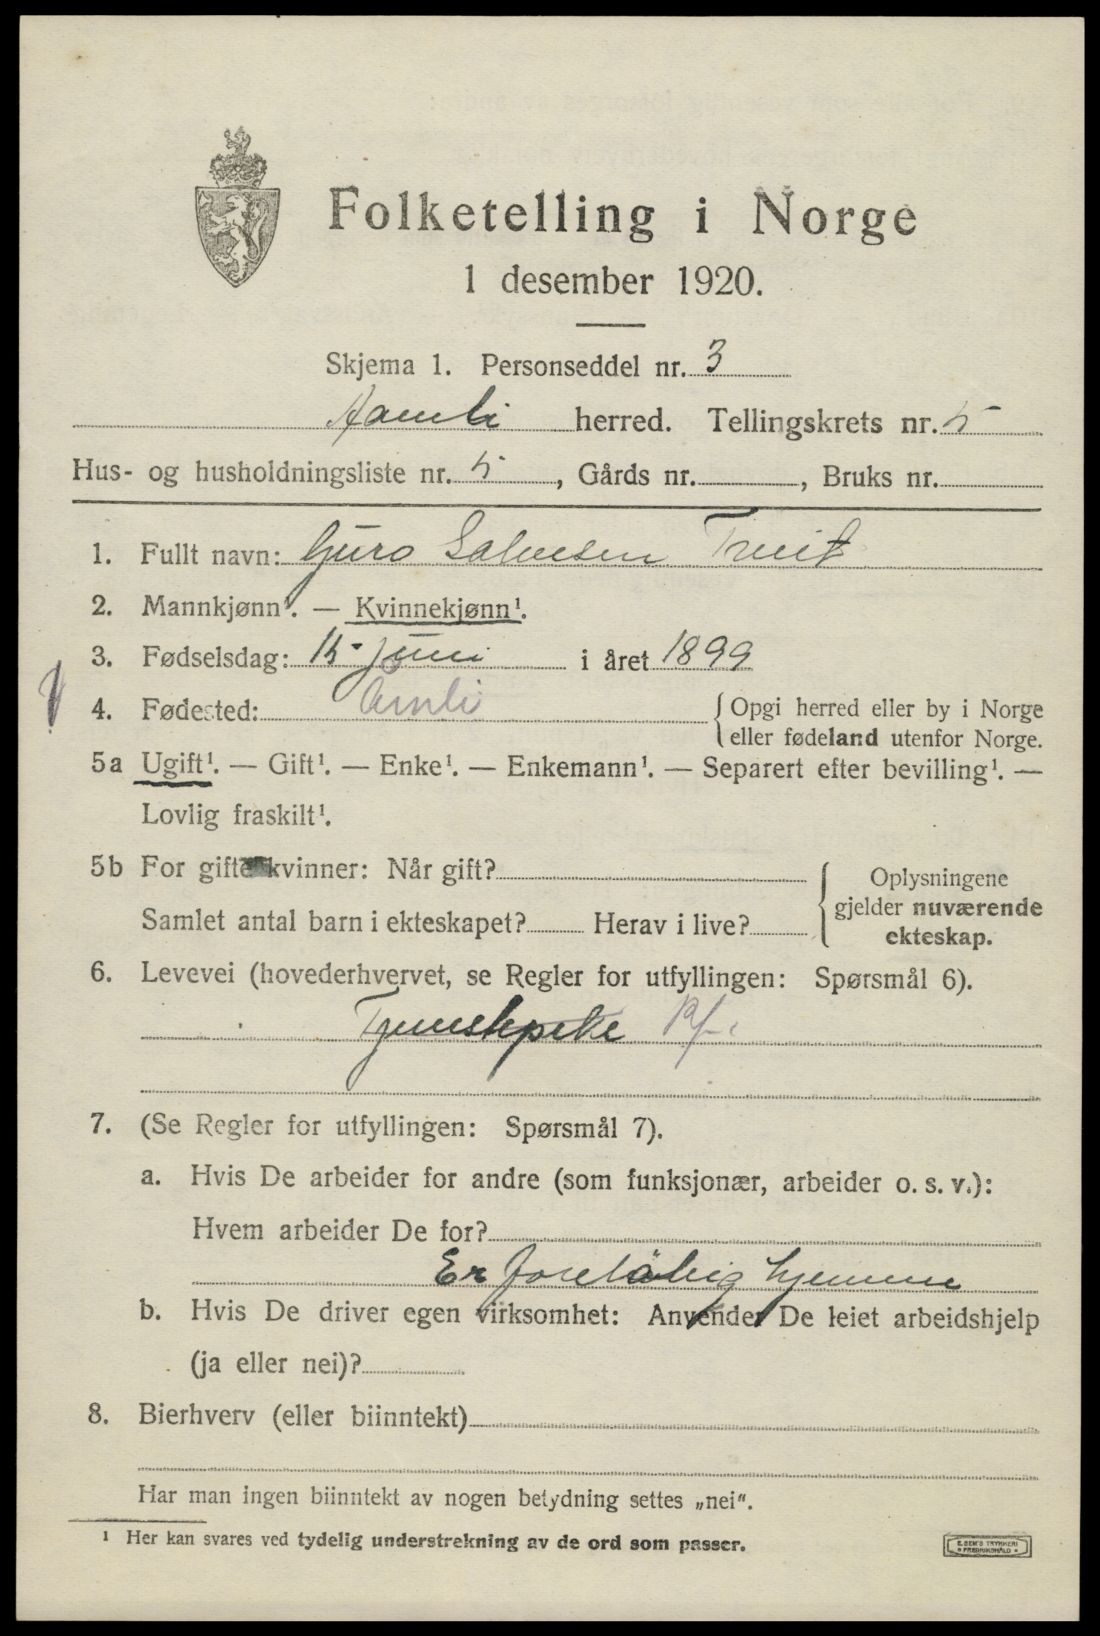 Folketelling i Norge
1 desember 1920.
Skjema 1. Personseddel nr. 3
Aamli herred. Tellingskrets nr. 5
Hus- og husholdningsliste nr. 5, Gårds nr. , Bruks nr.
1. Fullt navn: Guro Salvesen
2. Mannkjønn¹. — Kvinnekjønn¹.
3. Fødselsdag: 15 juni i året 1899
4. Fødested: Åmli { Opgi herred eller by i Norge
eller fødeland utenfor Norge.
5a Ugift¹. — Gift¹. — Enke¹. — Enkemann¹. — Separert efter bevilling¹. —
Lovlig fraskilt¹.
5b For gifte kvinner: Når gift?
Samlet antal barn i ekteskapet? Herav i live?
Oplysningene
gjelder nuværende
ekteskap.
6. Levevei (hovederhvervet, se Regler for utfyllingen: Spørsmål 6).
Tjenestepike
7. (Se Regler for utfyllingen: Spørsmål 7).
a. Hvis De arbeider for andre (som funksjonær, arbeider o. s. v.):
Hvem arbeider De for?
Er foreløbig hjemme
b. Hvis De driver egen virksomhet: Anvender De leiet arbeidshjelp
(ja eller nei)?
8. Bierhverv (eller biinntekt)
Har man ingen biinntekt av nogen betydning settes „nei“.
¹ Her kan svares ved tydelig understrekning av de ord som passer.
E. SEM'S TRYKKERI
FREDRIKSHALD